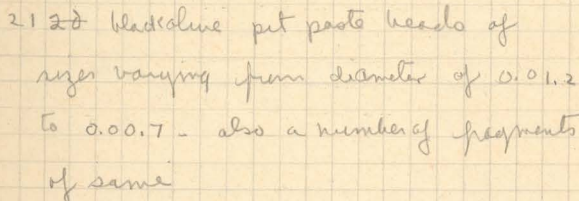 21 20 blackolive pit paste beads of
sizes varying from diameter of 0.01.2
to 0.00.7 - also a number of fragments
of same